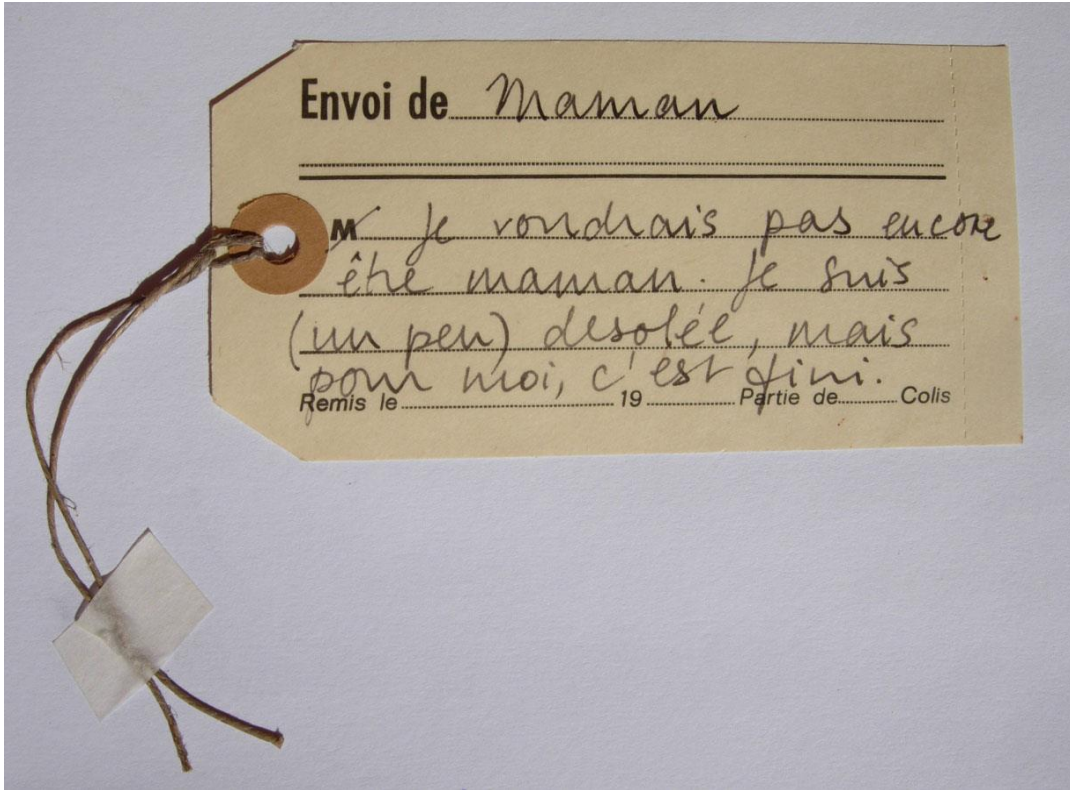 Envoi de Maman
M Je voudrais pas encore
être maman. Je suis
(un peu) desolée, mais
pour moi, c'est fini.
Remis le 19 Partie de Colis